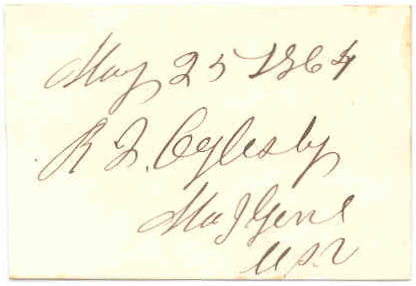 May 25 1864
R J. Oglesby
Maj Genl
U S. V